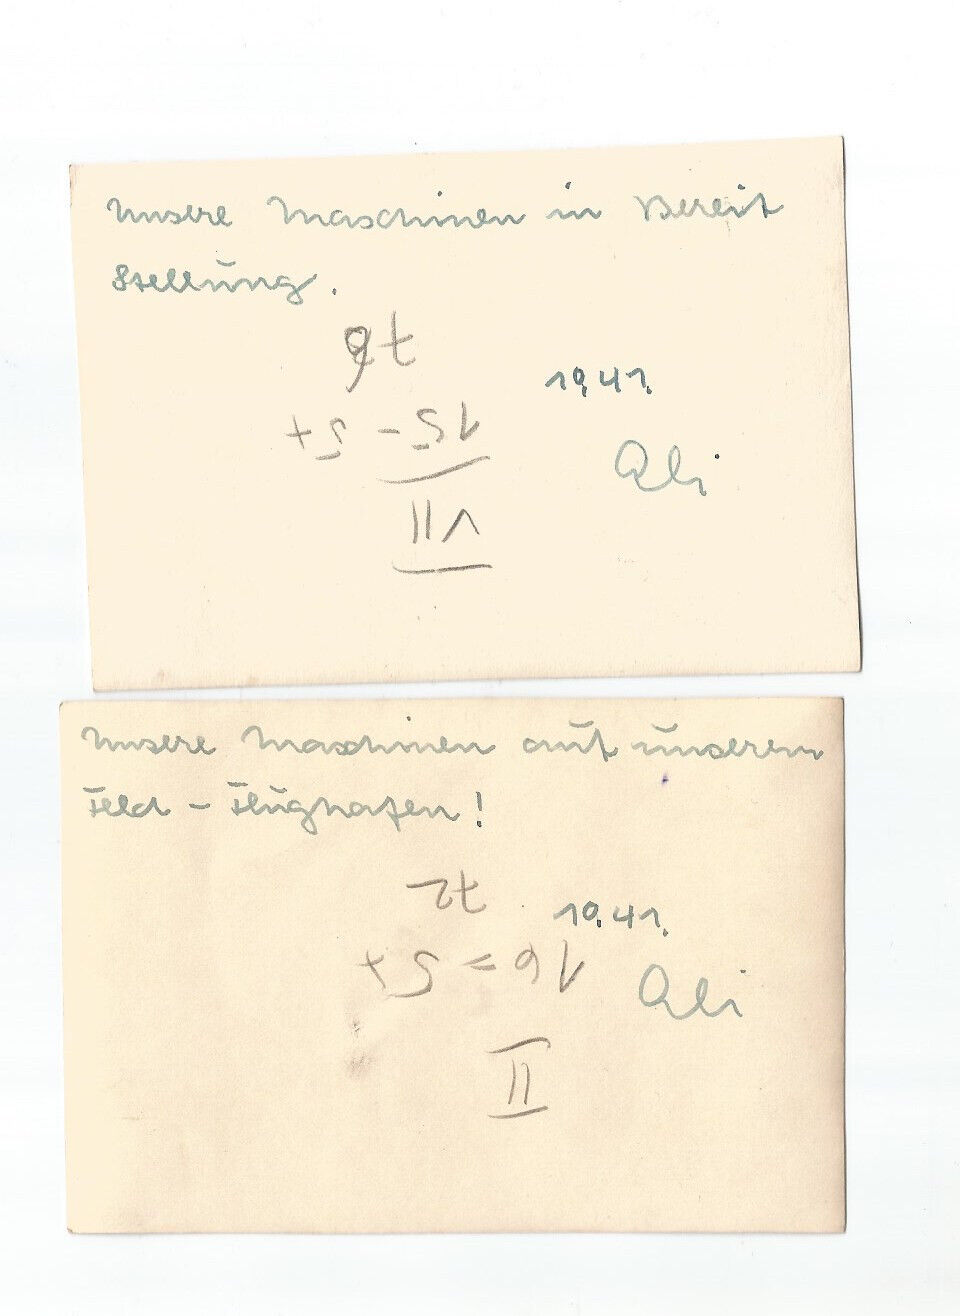 Unsere Maschinen in Bereit
Stellung.
76
1941.
15 - 5+
Ali
VII
Unsere Maschinen auf unserem
Feld - Flughafen!
72
1941.
16 = 5+
Ali
II